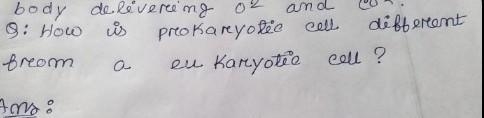 body delivereing O² and
Q: How is prokaryotic cell different
from a eu Karyotic cell ?
Ans :